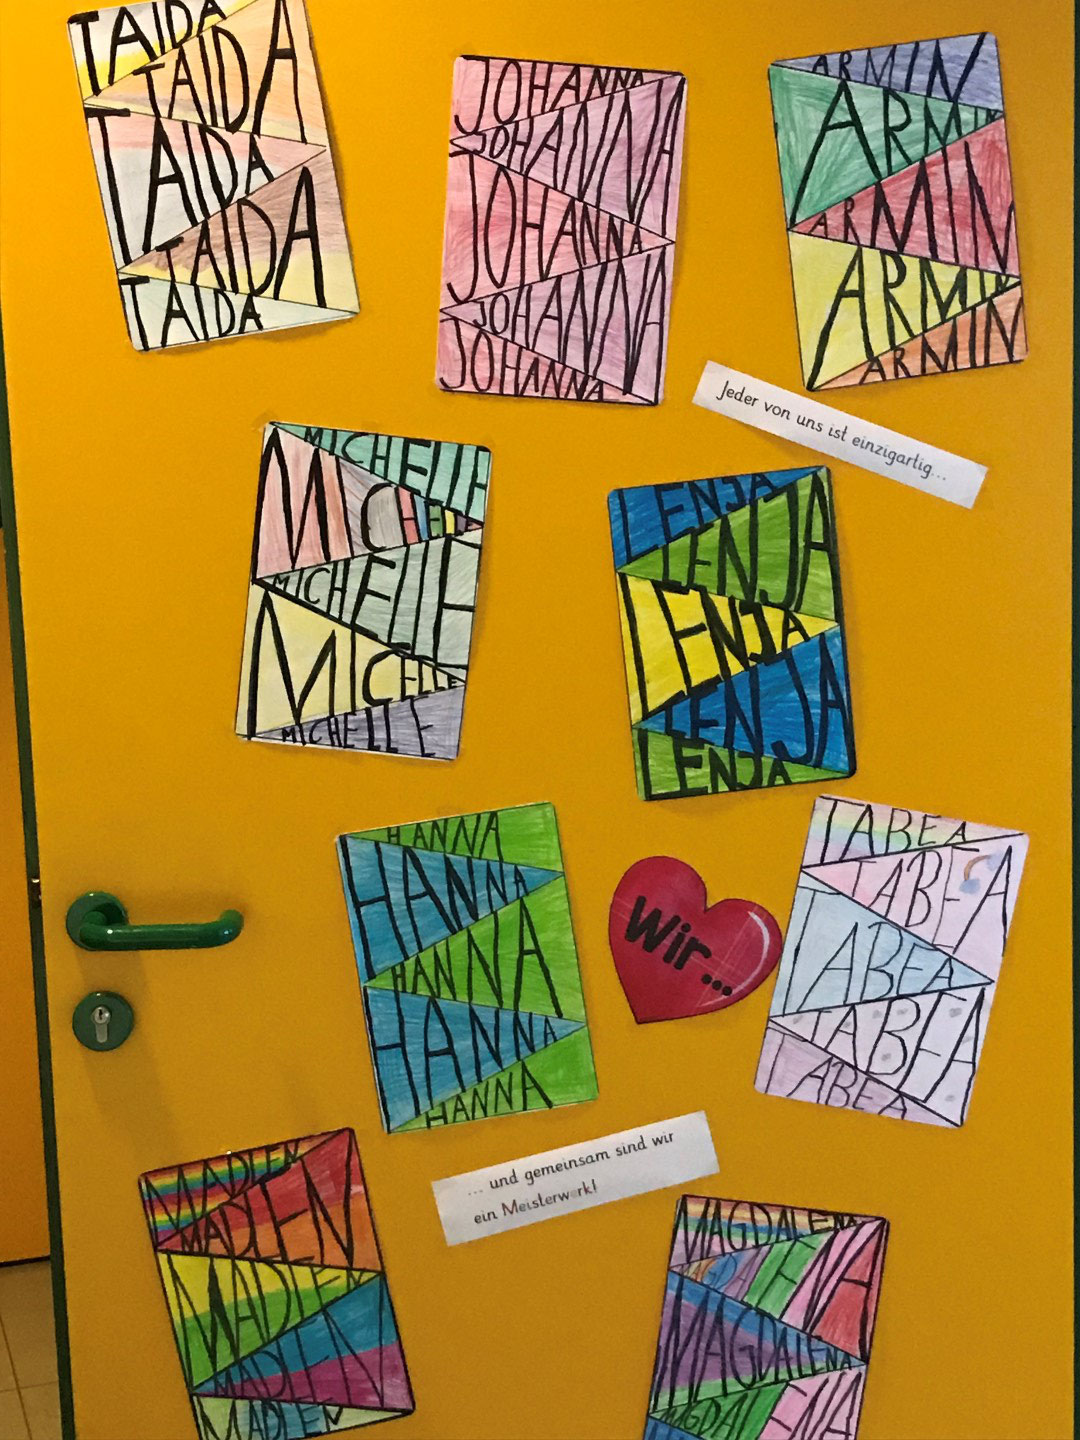 TAIDA
TAIDA
TAIDA
TAIDA
TAIDA
JOHANNA
JOHANNA
JOHANNA
JOHANNA
JOHANNA
ARMIN
ARMIN
ARMIN
ARMIN
ARMIN
Jeder von uns ist einzigartig...
MICHELLE
MICHELLE
MICHELLE
MICHELLE
MICHELLE
LENJA
LENJA
LENJA
LENJA
LENJA
HANNA
HANNA
HANNA
HANNA
HANNA
Wir...
TABEA
TABEA
TABEA
TABEA
TABEA
... und gemeinsam sind wir
ein Meisterwerk!
MADLEN
MADLEN
MADLEN
MADLEN
MADLEN
MADLEN
MAGDALENA
MAGDALENA
MAGDALENA
MAGDALENA